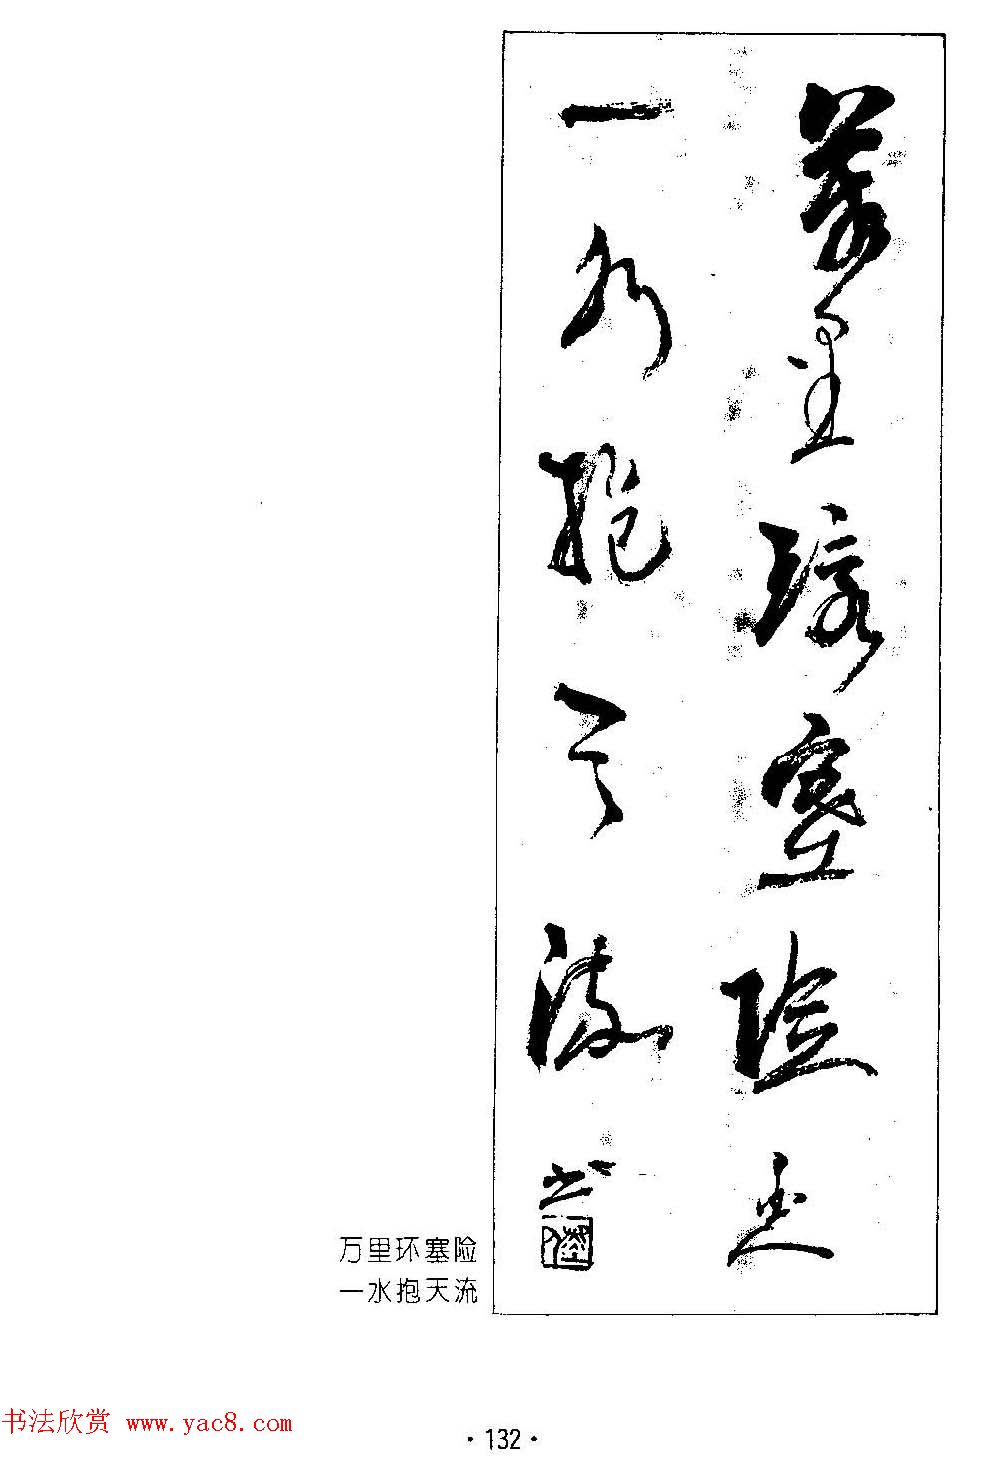 萬里環塞險
一水抱天流
万里环塞险
一水抱天流
书法欣赏 www.yac8.com
·132·